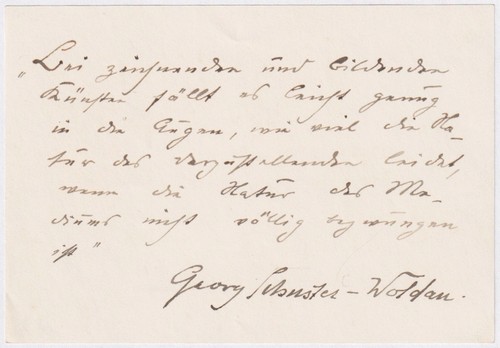 „Bei zeichnenden und bildenden
Künsten fällt es leicht genug
in die Augen, wie viel die Na-
tur des darzustellenden leidet,
wenn die Natur des Me-
diums nicht völlig bezwungen
ist"
Georg Schuster-Woldan.